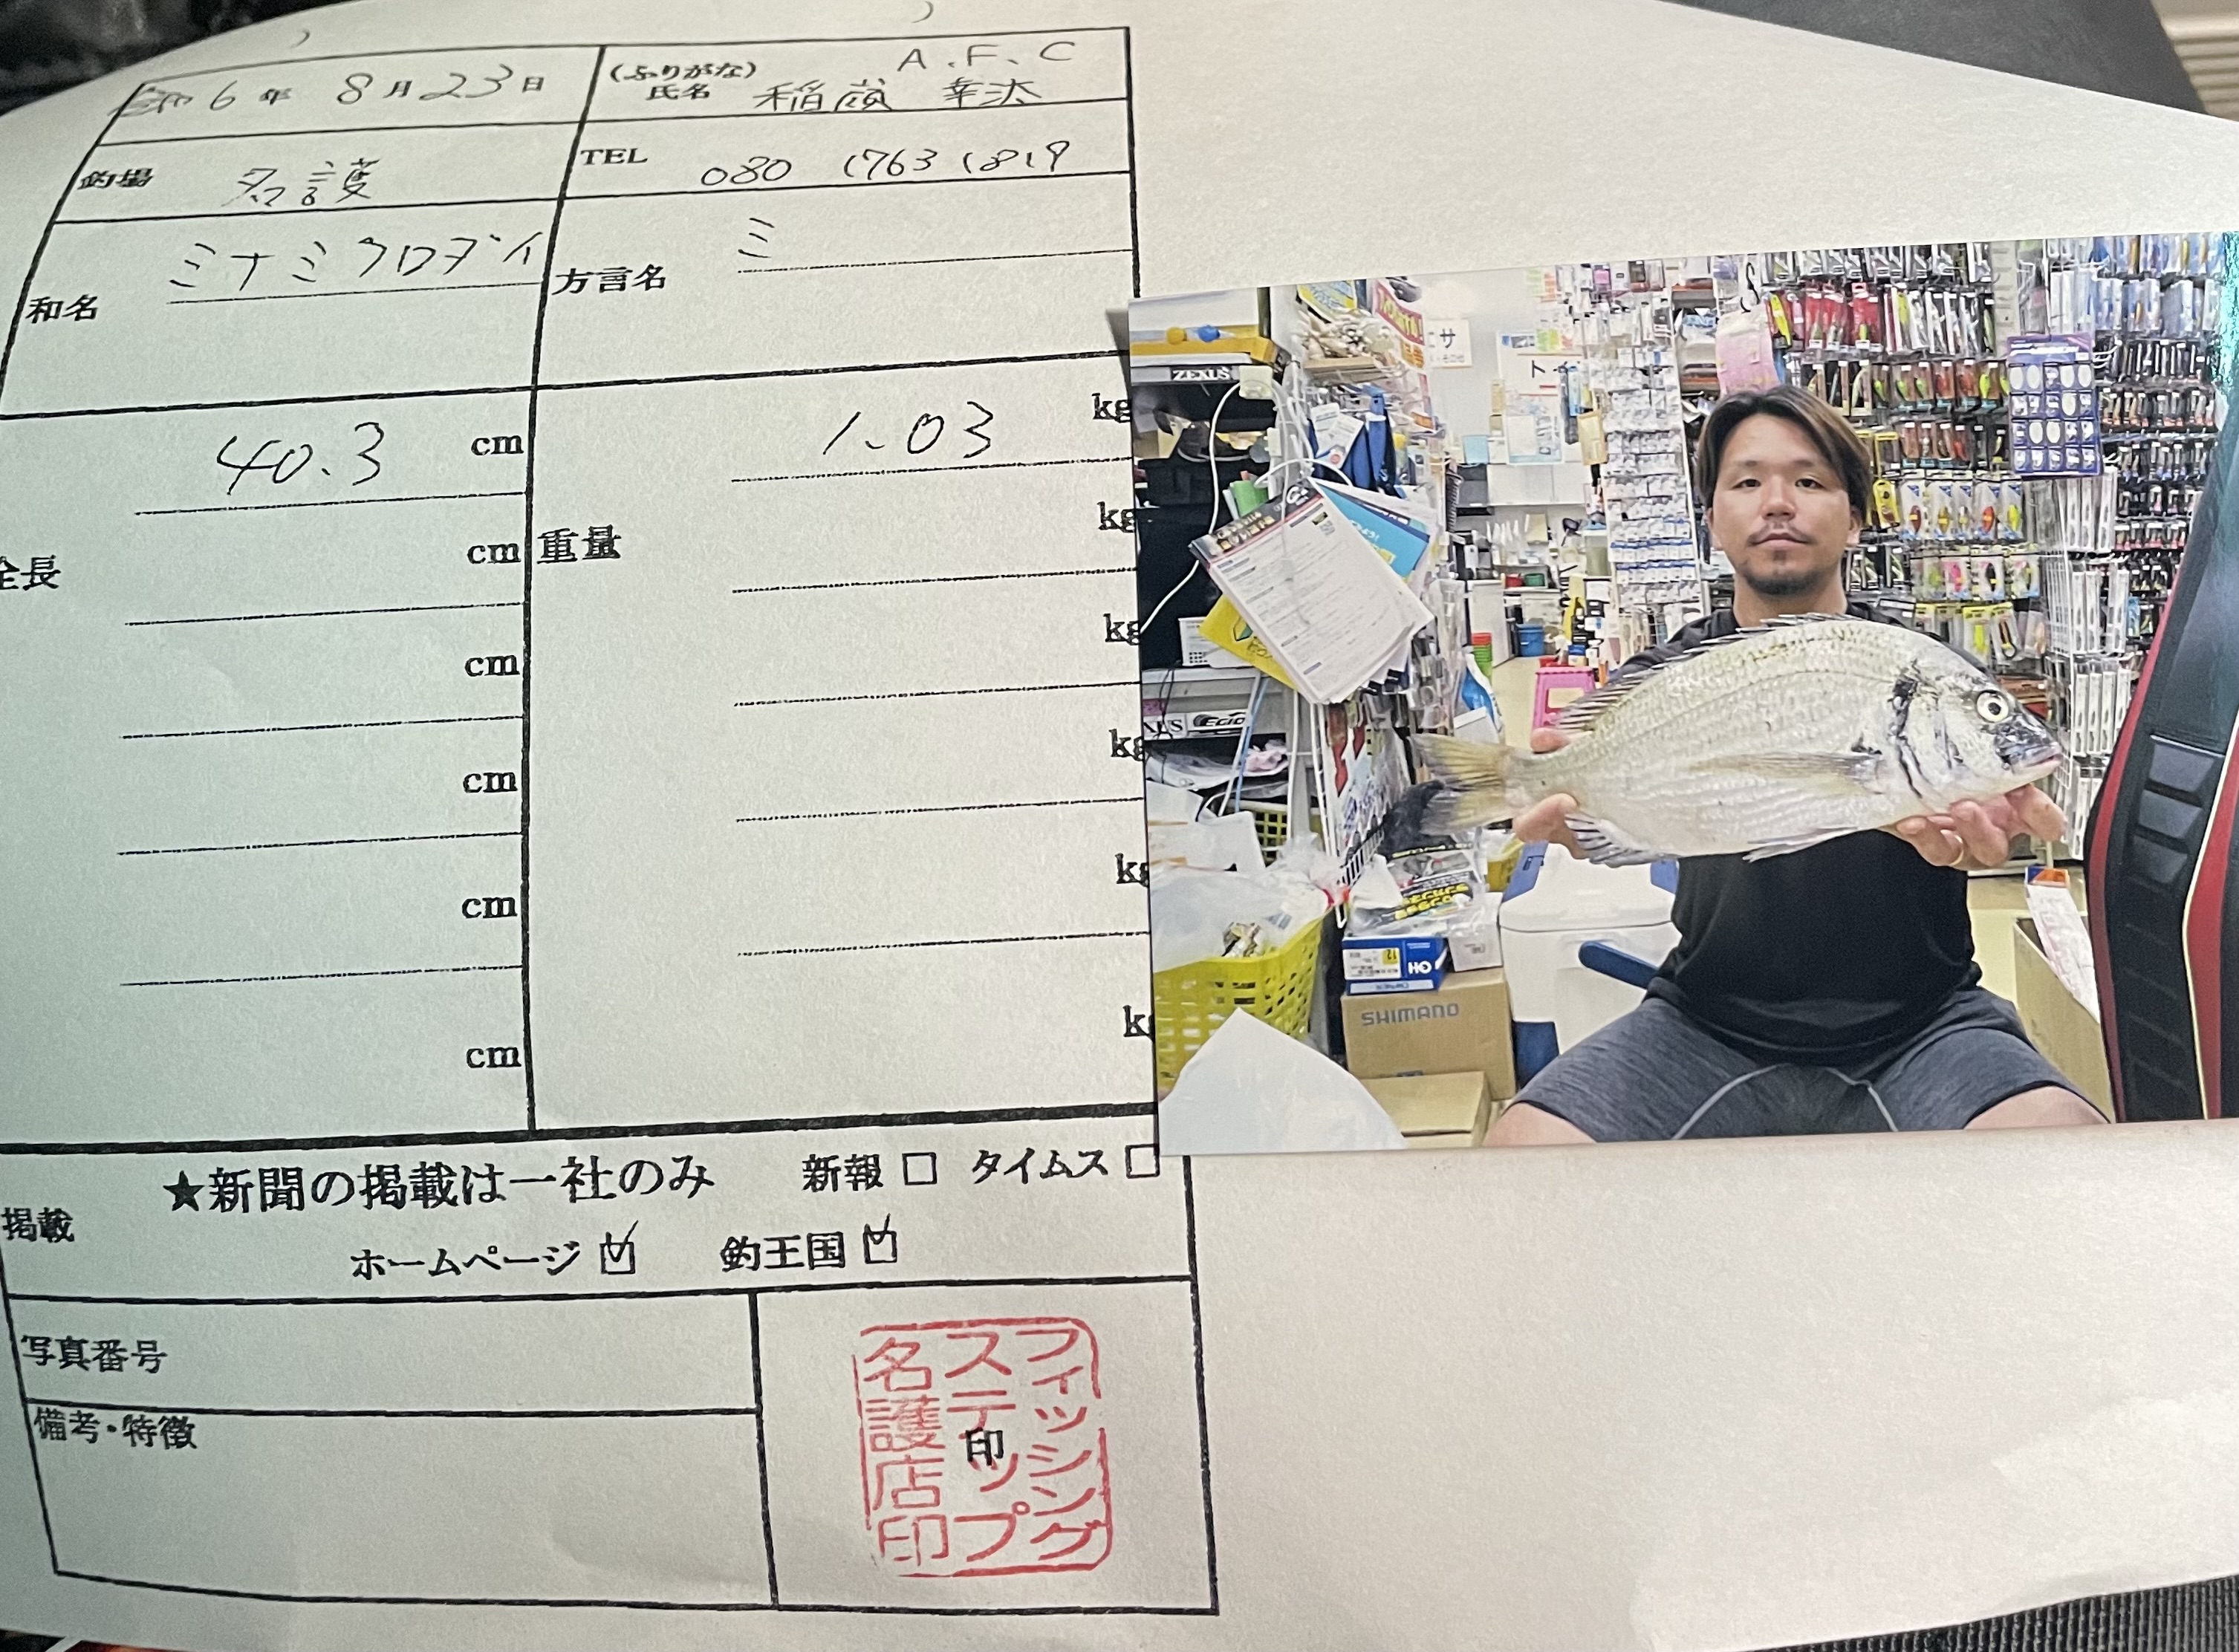 6年 8月23日
(ふりがな) A.F.C
氏名 稲嶺 幸汰
釣場 名護
TEL 080 1763 1819
和名 ミナミクロダイ
方言名 ミ
全長 40.3 cm
cm
cm
cm
cm
cm
重量 1.03 kg
kg
kg
kg
kg
k
掲載 ★新聞の掲載は一社のみ 新報 □ タイムス □
ホームページ ☑ 釣王国 ☑
写真番号
備考・特徴
印
フィッシング
ステップ
名護店印
ZEXUS
SHIMANO
OH
12